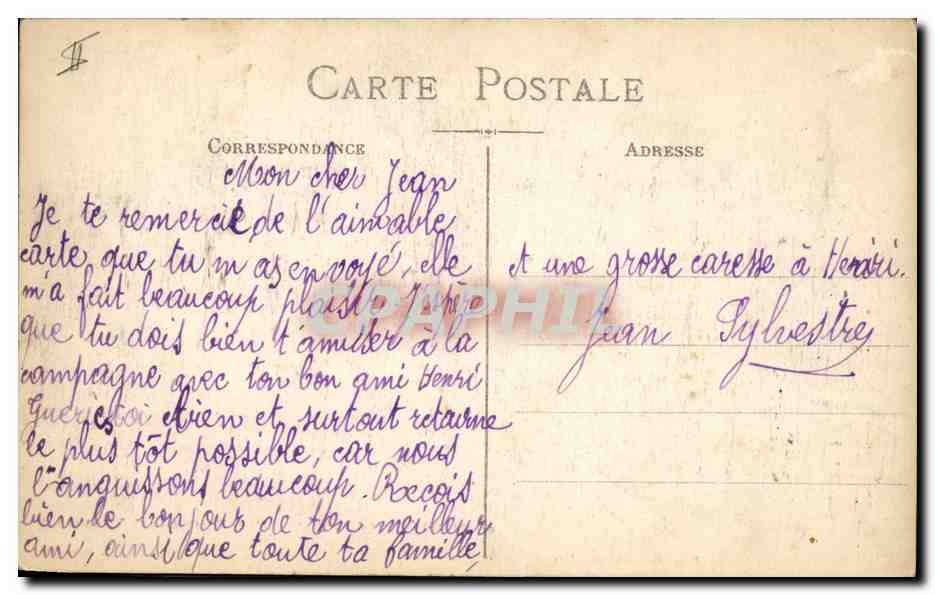 CARTE POSTALE
CORRESPONDANCE
ADRESSE
Mon cher Jean
Je te remercie de l'aimable
carte que tu m'as envoyé, elle
m'a fait beaucoup plaisir J'espère
que tu dois bien t'amuser à la
campagne avec ton bon ami Henri
Gueris toi bien et surtout retourne
le plus tôt possible, car nous
languissons beaucoup. Reçois
bien le bonjour de ton meilleur
ami, ainsi que toute ta famille,
et une grosse caresse à Henri.
Jean Sylvestre
CPAPHIL